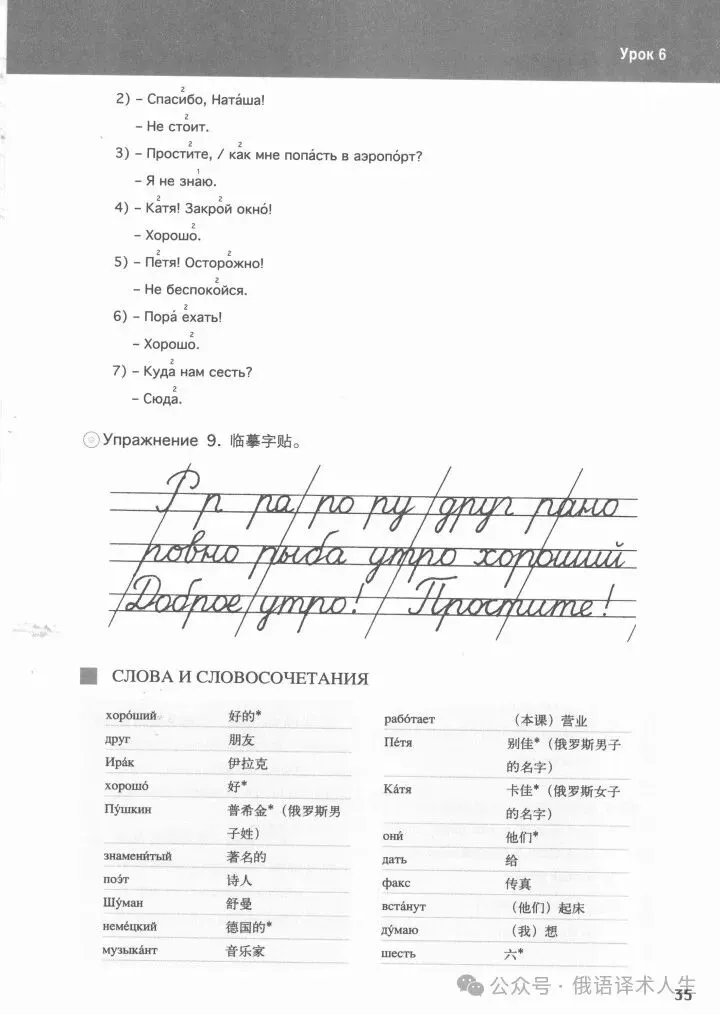 Урок 6
2) – Спаси́бо, Ната́ша!
– Не сто́ит.
3) – Прости́те, / ка́к мне попа́сть в аэропо́рт?
– Я не зна́ю.
4) – Ка́тя! Закро́й окно́!
– Хорошо́.
5) – Пе́тя! Осторо́жно!
– Не беспоко́йся.
6) – Пора́ е́хать!
– Хорошо́.
7) – Куда́ нам сесть?
– Сюда́.
Упражнение 9. 临摹字贴。
Р р ра ро ру друг рано
ровно рыба утро хороший
Доброе утро! Простите!
СЛОВА И СЛОВОСОЧЕТАНИЯ
хоро́ший 好的*
друг 朋友
Ира́к 伊拉克
хорошо́ 好*
Пу́шкин 普希金*（俄罗斯男
子姓）
знамени́тый 著名的
поэ́т 诗人
Шу́ман 舒曼
неме́цкий 德国的*
музыка́нт 音乐家
рабо́тает （本课）营业
Пе́тя 别佳*（俄罗斯男子
的名字）
Ка́тя 卡佳*（俄罗斯女子
的名字）
они́ 他们*
дать 给
факс 传真
вста́нут （他们）起床
ду́маю （我）想
шесть 六*
公众号·俄语译术人生
35